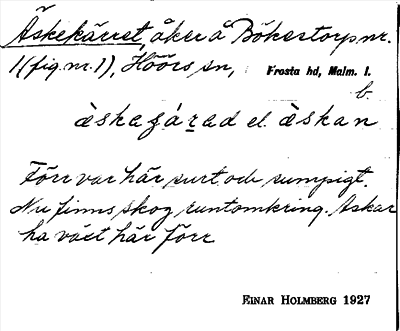 Äskekärret, åker å Bökestorp nr.
1 (fig. nr. 1), Höörs sn, Frosta hd, Malm. l.
b.
el. èskan
Förr var här surt och sumpigt.
Nu finns skog runtomkring. Askar
ha växt här förr
EINAR HOLMBERG 1927